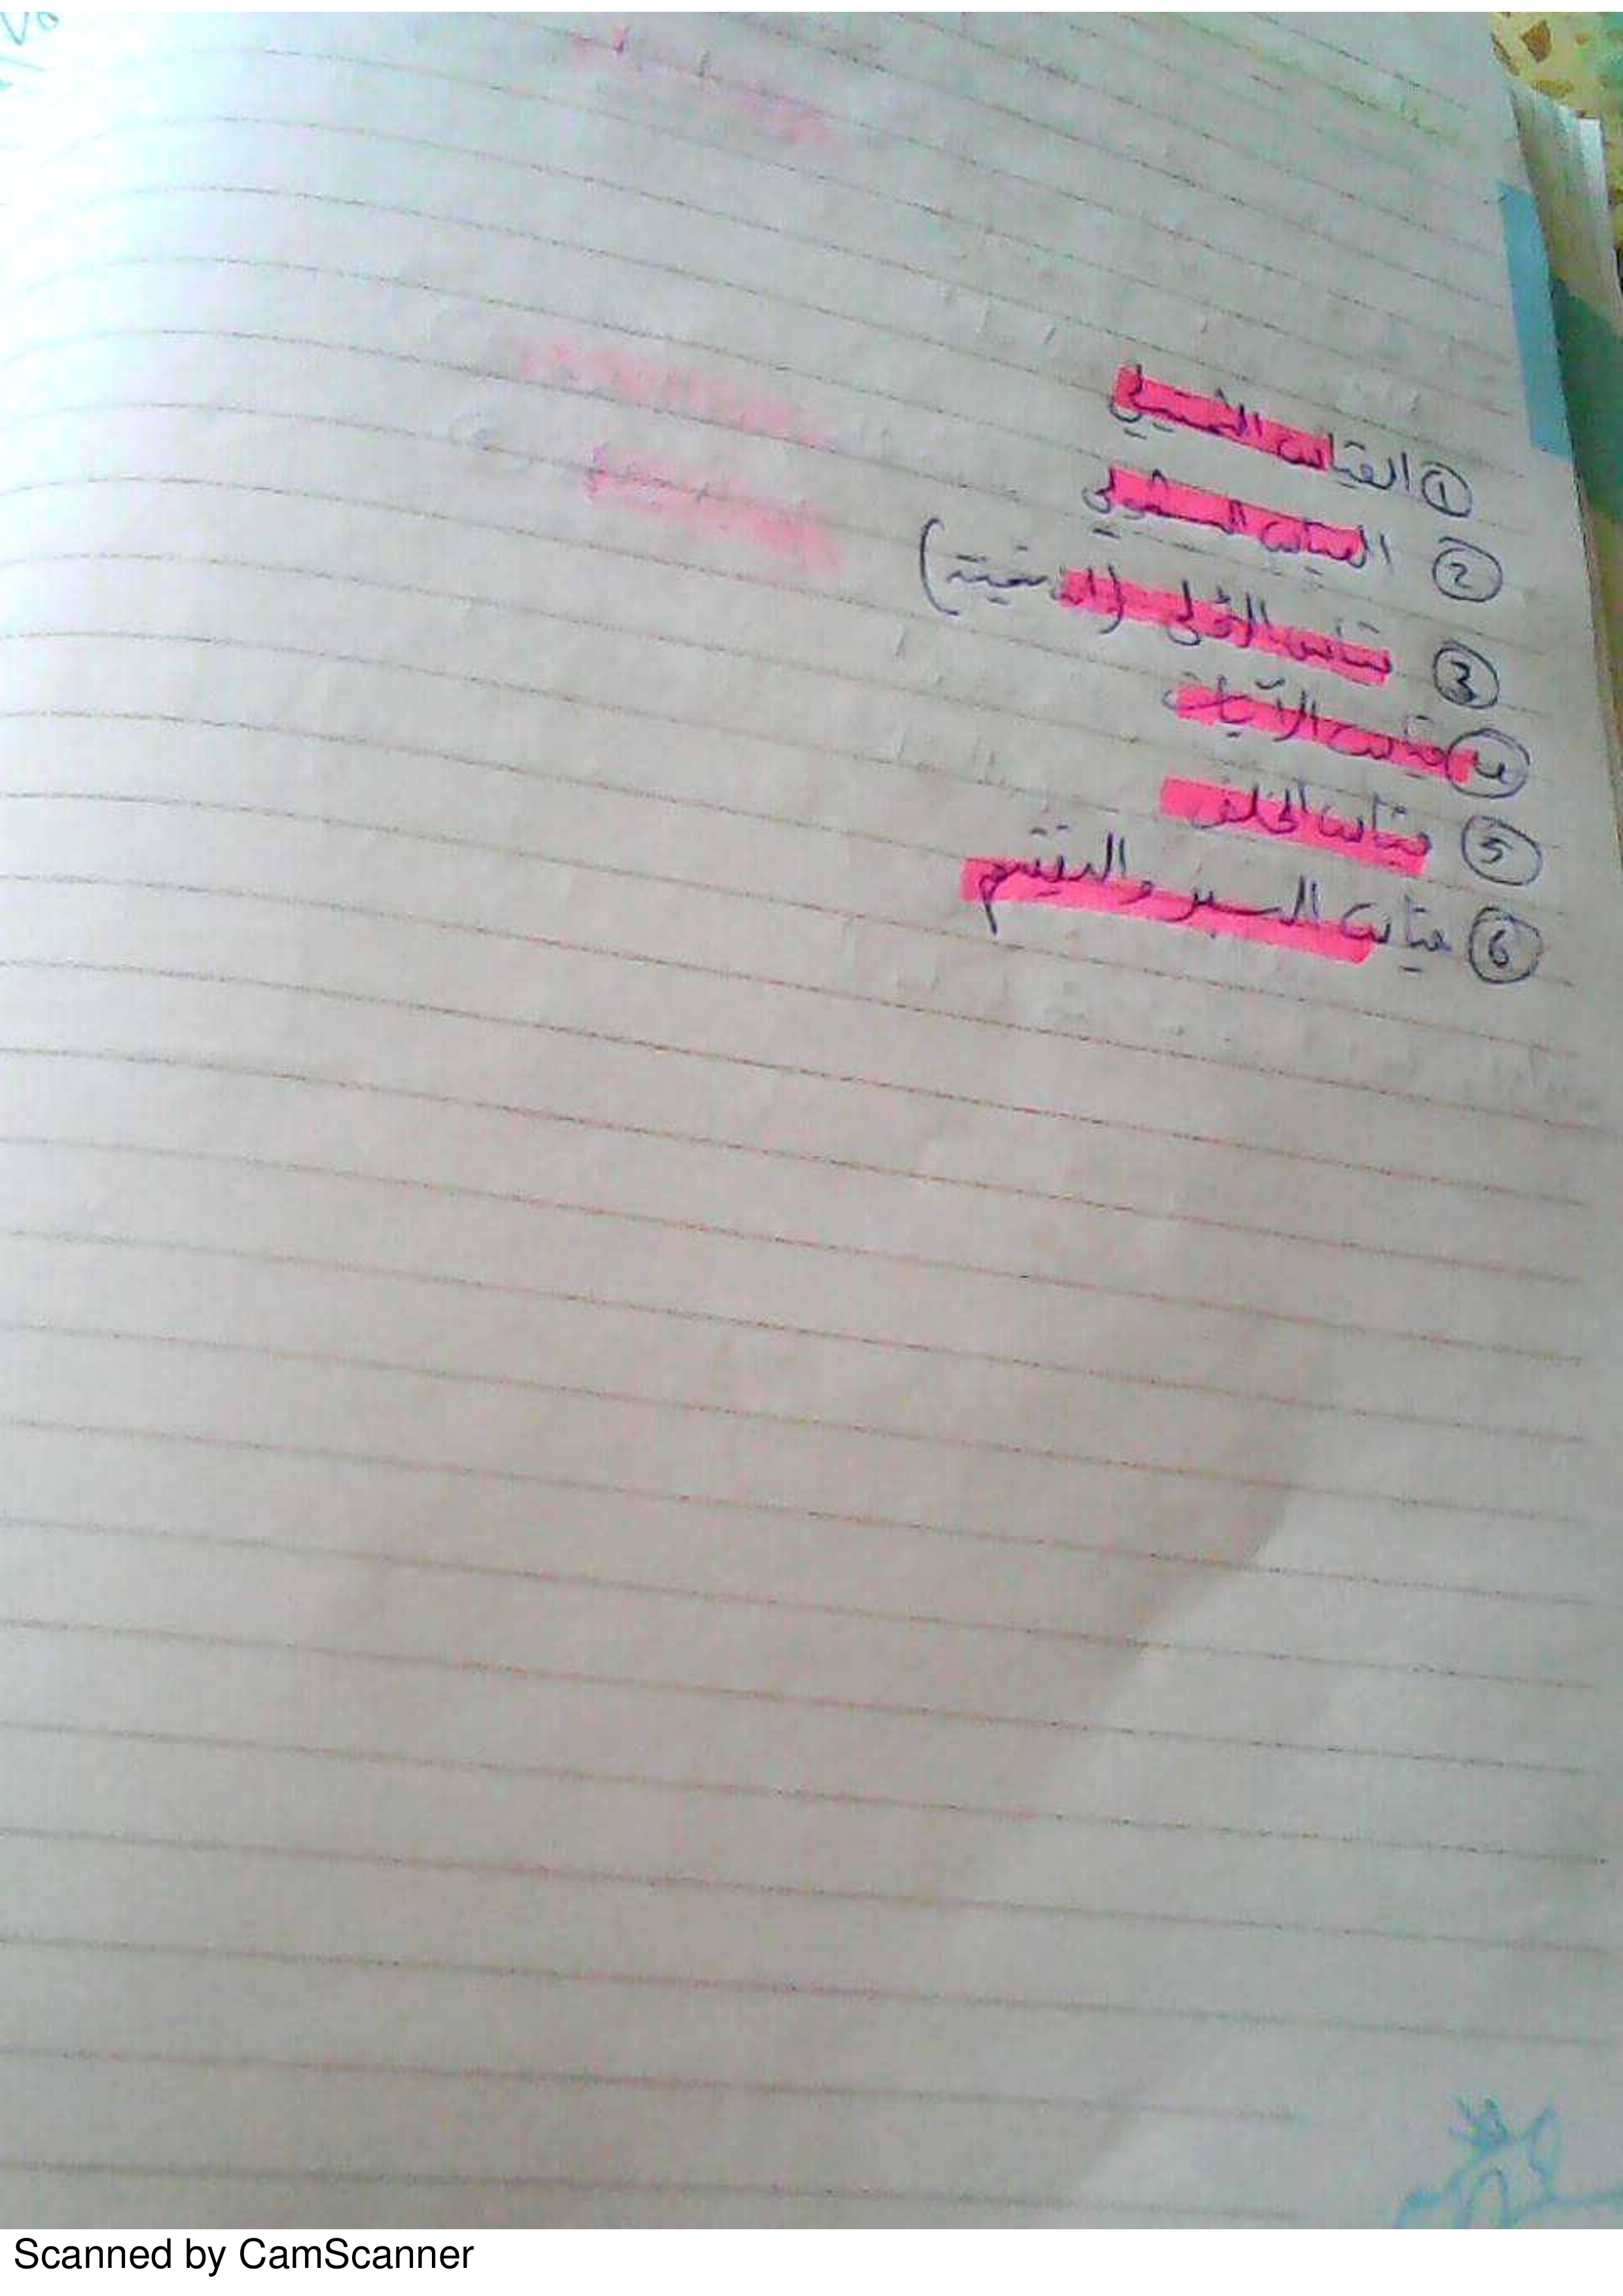 ① القياس التمثيلي
② القياس الشمولي
③ قياس الأولى (
④ قياس الآيات
⑤ قياس الخلف
⑥ قياس السبر والتقسيم
Scanned by CamScanner